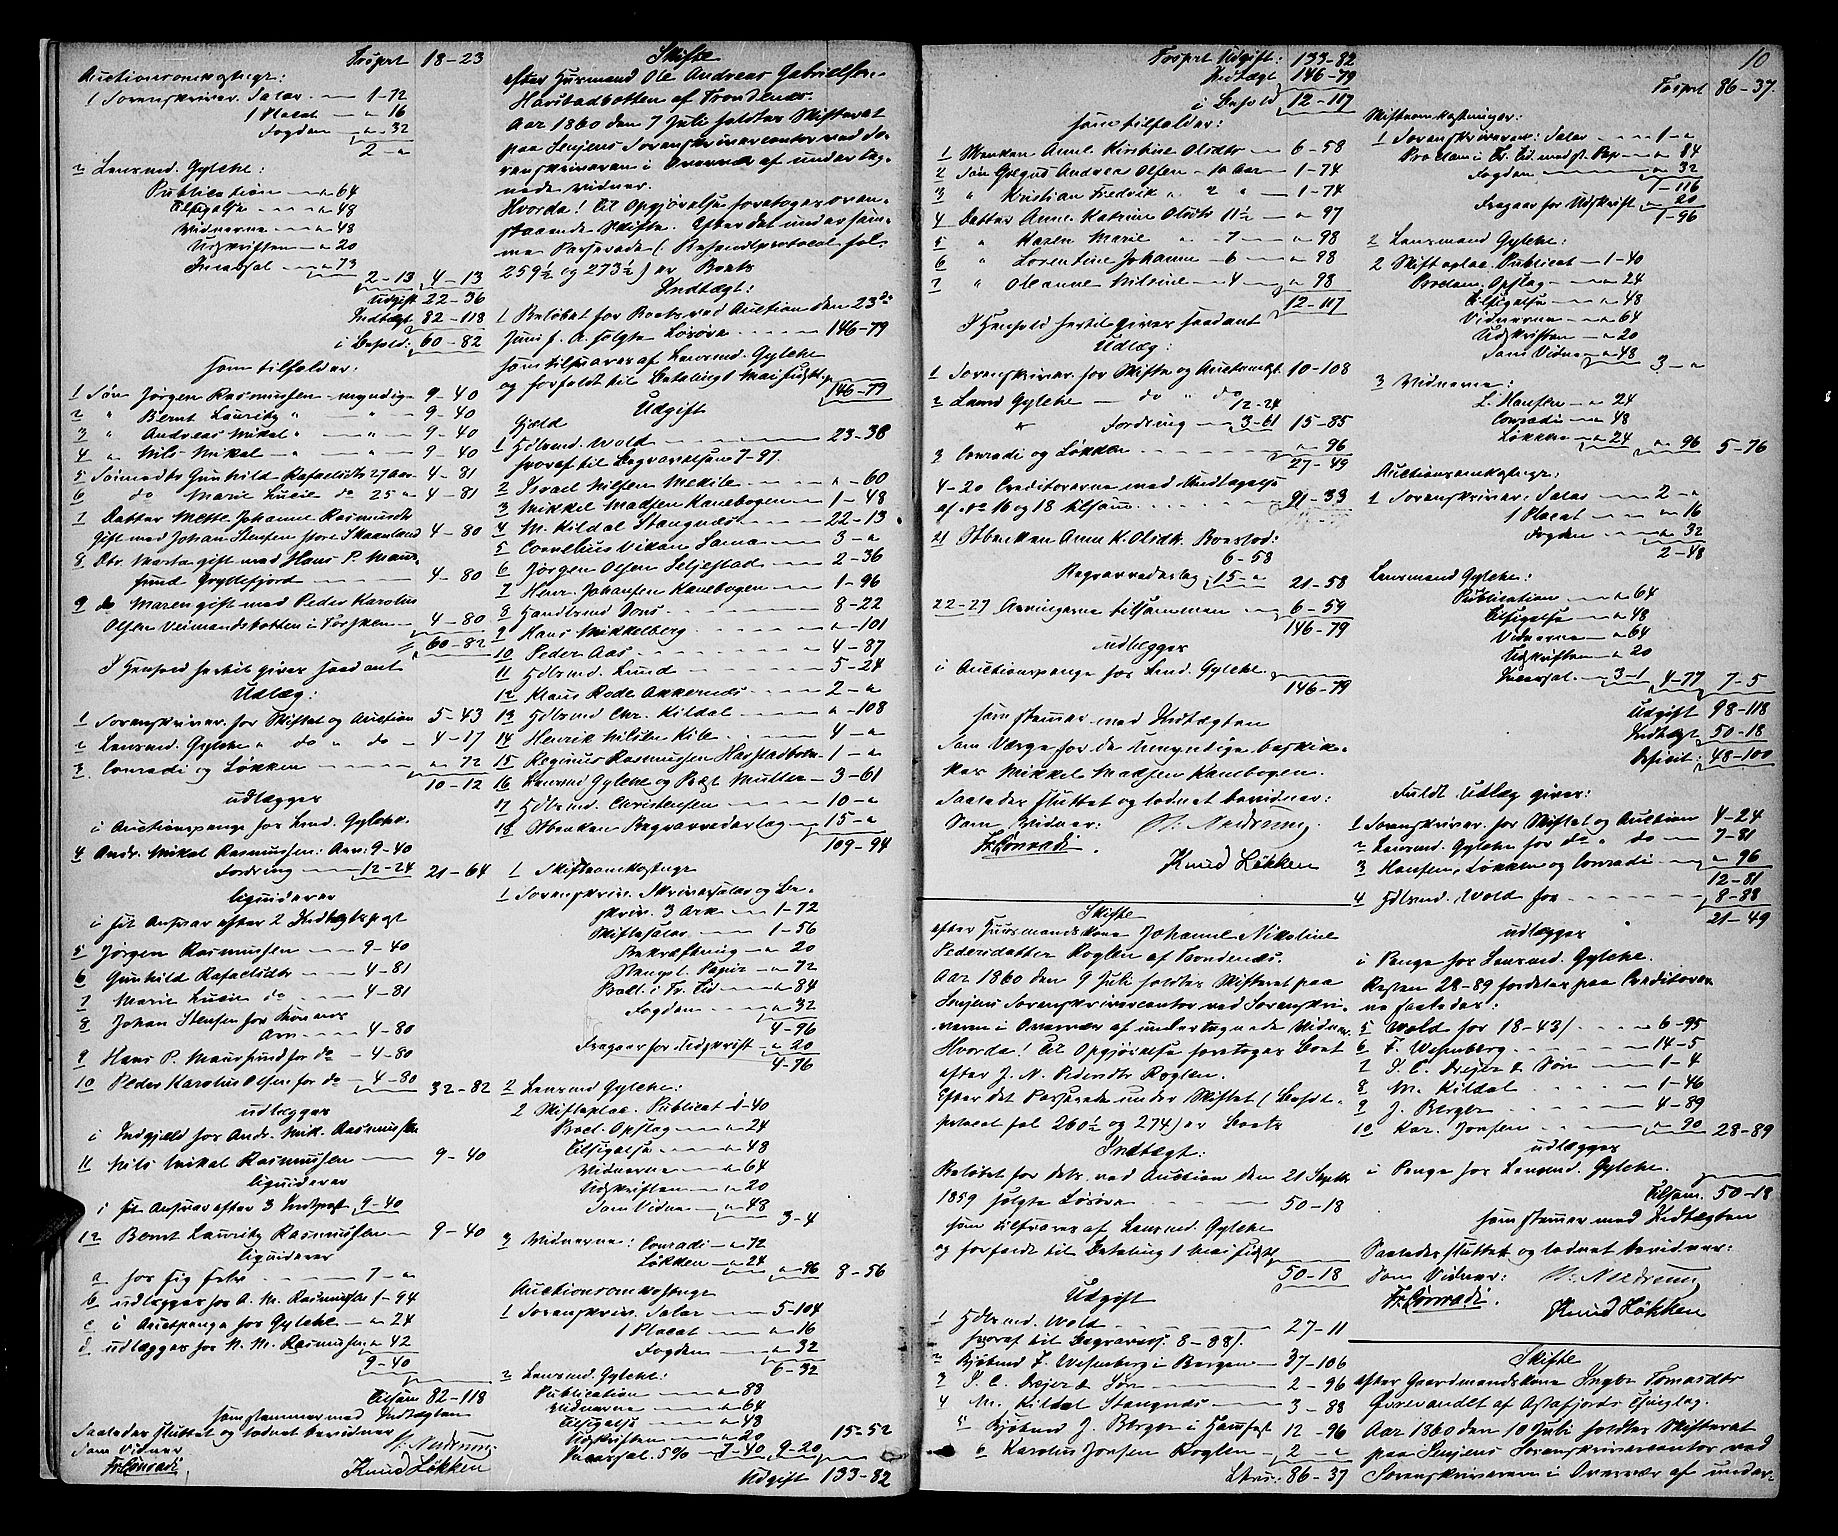 Trsprt 18-23
Auctionsomkostngr:
1 Sorenskriver. Salar. — 1-72
1 Placat — „ 16
Fogden — „ 32
2-„
2 Lensmd. Gylche:
Publication — „ 64
Tilsigelse — „ 48
Vidnerne — „ 48
Udskriften — „ 20
Incassal — „ 73
2-13 4-13
Udgift 22-36
Indtægt 82-118
i Behold: 60-82
som tilfalder:
1 Søn Jørgen Rasmussen - myndig 9-40
2 „ Bernt Lauritz „ — „ — 9-40
3 „ Andreas Mikal „ — „ — 9-40
4 „ Nils Mikal „ — „ — 9-40
5 Sønnedtr Gunhild Rafaelsdtr 27 aar 4-81
6 do Marie Lucie do 25 „ 4-81
7 Datter Mette Johanne Rasmusdtr
gift med Johan Stensen store Skaanland 4-80
8 Dtr. Marta gift med Hans P. Maur-
sund Gryllefjord — 4-80
9 do Maren gift med Peder Karolius
Olsen Veimandsbotten i Torsken — 4-80
60-82
I Henhold hertil gives saadant
Udlæg:
1 Sorenskriver. for Skiftet og Auction 5-43
2 Lensmd. Gylche „ do „ do — 4-17
3 Conradi og Løkken — „ 72
10-12
udlægges
i Auctionspenge hos Lensd. Gylche.
4 Andr. Mikal Rasmussen: Arv: 9-40
Fordring — 12-24 21-64
liquiderer
i sit Ansvar efter 2 Indtægtspost
5 Jørgen Rasmussen — 9-40
6 Gunhild Rafaelsdtr — 4-81
7 Marie Lucie do — 4-81
8 Johan Stensen for Konens
Arv — 4-80
9 Hans P. Maursund for do — 4-80
10 Peder Karolius Olsen for do — 4-80 32-82
udlægges
i Indgjæld hos Andr. Mik. Rasmussen
11 Nils Mikal Rasmussen — 9-40
liquiderer
i sit Ansvar efter 3 Indtpost 9-40
12 Bernt Lauritz Rasmussen — 9-40
liquiderer
a hos sig selv — 7-„
b udlægges hos A. M. Rasmussen 1-94
c i Auctpenge hos Gylche — „ 24
d udlægges hos N. M. Rasmussen „ 42
9-40
Tilsam 82-118
som stemmer med Indtægten
Saaledes sluttet og lodnet bevidner
Som Vidner
Fr. Conradi,
Knud Løkken
Skifte
efter Huusmand Ole Andreas Gabrielsen
Harstadbotten af Trondenæs.
Aar 1860 den 7 Juli holdtes Skifteret
paa Senjens Sorenskrivercontor ved So-
renskriveren i Overvær af underteg-
nede Vidner.
Hvorda! Til Opgjørelse foretoges oven-
staaende Skifte. Efter det under sam-
me Passerede (Behandlprotocol fol.
259½ og 273½) er Boets
Indtægt:
1 Beløbet for Boets ved Auction den 23de
Juni f. A. solgte Løsøre — 146-79
som tilsvares af Lensmd. Gylche
og forfaldt til Betaling 1 Mai sidstl.
146-79
Udgift
Gjæld
1 Hdlsmd. Wold — 23-38
hvoraf til Begravelsen 7-97.
2 Israel Nilsen Mekile — „-60
3 Mikkel Madsen Kanebogen — 1-48
4 M. Kildal Stangnæs — 22-13
5 Cornelius Vikan Sama — 3-„
6 Jørgen Olsen Seljestad — 2-36
7 Henr. Johansen Kanebogen — 1-96
8 Handlsmd Dons — 8-22
9 Hans Mikkelberg — „-101
10 Peder Aas — 4-87
11 Hdlsmd. Lund — 5-24
12 Klaus Rode Akkernæs — 2-„
13 Hdlsmd Chr. Kildal — „-108
14 Henrik Nilsen Kile — 4-„
15 Reginus Rasmussen Harstadbotn 1-„
16 Lensmd Gylche og Præst Müller — 3-61
17 Hdlsmd. Christensen — 10-„
18 Stbenken Begravvederlag — 15-„
109-94
1 Skifteomkostngr
1 Sorenskriv. Skriversalar og Be-
skriv. 3 Ark — 1-72
Skiftesalar — 1-56
Bekræftning — „ 20
Stempl. Papir — „ 72
Procl. i Tr. Tid — „ 84
Fogden — „ 32
4-96
Fragaar for Udskrift „ 20
4-76
2 Lensmd. Gylche:
2 Skifteplac. Publicat 1-40
Procl. Opslag — „ 24
Tilsigelse — „ 48
Vidnerne — „ 64
Udskriften — „ 20
Som Vidne — „ 48
3-4
3 Vidnerne: Conradi — „ 72
Løkken — „ 24 „ 96 8-56
Auctionsomkostnge
1 Sorenskriv. Salar — 5-104
1 Placat — „ 16
Fogden — „ 32
6-32
2 Lensmd. Gylche:
Publication — „ 88
Vidnerne — „ 64
Tilsigelse — „ 48
Udskriften — „ 20
Incassal. 5% 7-40 9-20 15-52
Udgift 133-82
Trsprt Udgift: 133-82
Indtægt 146-79
i Behold 12-117
som tilfalder:
1 Stenken Anne Kirstine Olsdtr — 6-58
2 Søn Gregus Andreas Olsen - 10 Aar — 1-74
3 „ Kristian Fredrik „ 2 „ — 1-74
4 Datter Anne Katrine Olsdtr 11½ — „ 97
5 „ Karen Marie „ 7 — „ 98
6 „ Lorentine Johanne — 6 — „ 98
7 „ Oleanne Nilsine — 4 — „ 98
12-117
I Henhold hertil gives saadant
Udlæg:
1 Sorenskriver. for Skifte og Auctomkst 10-108
2 Lensmd Gylche — do „ do
12-24
„ Fordring — 3-61 15-85
3 Conradi og Løkken — „ 96
27-49
4-20 Creditorerne med Undtagelse
af No 16 og 18 tilsam — 91-33
21 Stbenken Anne K. Olsdtr. Boeslod:
6-58
Begravvederlag 15-„ 21-58
22-27 Arvingerne tilsammen — 6-59
146-79
udlægges
i Auctionspenge hos Lensd. Gylche.
146-79
som stemmer med Indtægten
Som Værge for de Umyndige beskik-
kes Mikkel Madsen Kanebogen.
Saaledes sluttet og lodnet bevidner:
Som Vidner:
Fr. Conradi.
Knud Løkken
Skifte
efter Huusmandskone Johanne Nikoline
Pedersdatter Roglen af Trondenæs.
Aar 1860 den 9 Juli holdtes Skifteret paa
Senjens Sorenskrivercontor ved Sorenskri-
veren i Overvær af undertegnede Vidner.
Hvorda! Til Opgjørelse foretoges Boet
efter J. N. Pedersdtr Roglen.
Efter det Passerede under Skiftet (Behdl-
protocol fol 260½ og 274) er Boets
Indtægt:
Beløbet for dets ved Auction den 21 Septbr
1859 solgte Løsøre — 50-18
som tilsvares af Lensmd. Gylche
og forfaldt til Betaling 1 Mai sidstl.
50-18
Udgift
1 Hdlsmd. Wold — 27-11
hvoraf til Begravels. 8-88).
2 Kjøbmd F. Wesenberg i Bergen — 37-106
3 I. C. Dreier & Søn — 2-96
4 M. Kildal Stangnæs — 3-88
5 Kjøbmd J. Berger i Hamfest 12-96
6 Karolius Jonsen Roglen — 2-„
Latus: 86-37
10
Trsprt 86-37.
Skifteomkostninger:
1 Sorenskriveren: Salar — 1-„
Proclam i Tr. Tid. med st. Pap. — „ 84
Fogden — „ 32
1-116
Fragaar for Udskrift „ 20
1-96
2 Lensmand Gylche:
2 Skifteplac. Publicat — 1-40
Proclam. Opslag — „ 24
Tilsigelse — „ 48
Vidnerne — „ 64
Udskriften — „ 20
Som Vidne — „ 48
3-„
3 Vidnerne:
L. Hansen — „ 24
Conradi — „ 48
Løkken — „ 24 „ 96 5-76
Auctionsomkostngr:
1 Sorenskriver: Salar — 2-„
1 Placat — „ 16
Fogden — „ 32
2-48
Lensmand Gylche:
Publication — „ 64
Tilsigelse — „ 48
Vidnerne — „ 64
Udskriften — „ 20
Incassal. — 3-1 4-77 7-5
Udgift 98-118
Indtægt 50-18
Deficit: 48-100
Fuldt Udlæg gives:
1 Sorenskriver. for Skiftet og Auction 4-24
2 Lensmd. Gylche for do „ do — 7-81
3 Hansen, Løkken og Conradi — „ 96
12-81
4 Hdlsmd. Wold for — 8-88
21-49
udlægges
i Penge hos Lensmd. Gylche.
Resten 28-89 fordeles paa Creditorer-
ne saaledes:
5 Wold for 18-43) — 6-95
6 F. Wesenberg — 14-5
7 I. C. Dreier & Søn — 1-4
8 M. Kildal — 1-46
9 J. Berger — 4-89
10 Kar. Jonsen — „ 70 28-89
udlægges
i Penge hos Lensmd. Gylche.
Tilsam. 50-18
som stemmer med Indtægten
Saaledes sluttet og lodnet bevidner:
Som Vidner:
Fr. Conradi.
Knud Løkken
Skifte
efter Gaardmandskone Ingbr Tomasdtr
Øvrevandet af Astafjords Thinglag.
Aar 1860 den 10 Juli holdtes Skifteret
paa Senjens Sorenskrivercontor ved
Sorenskriveren i Overvær af under-